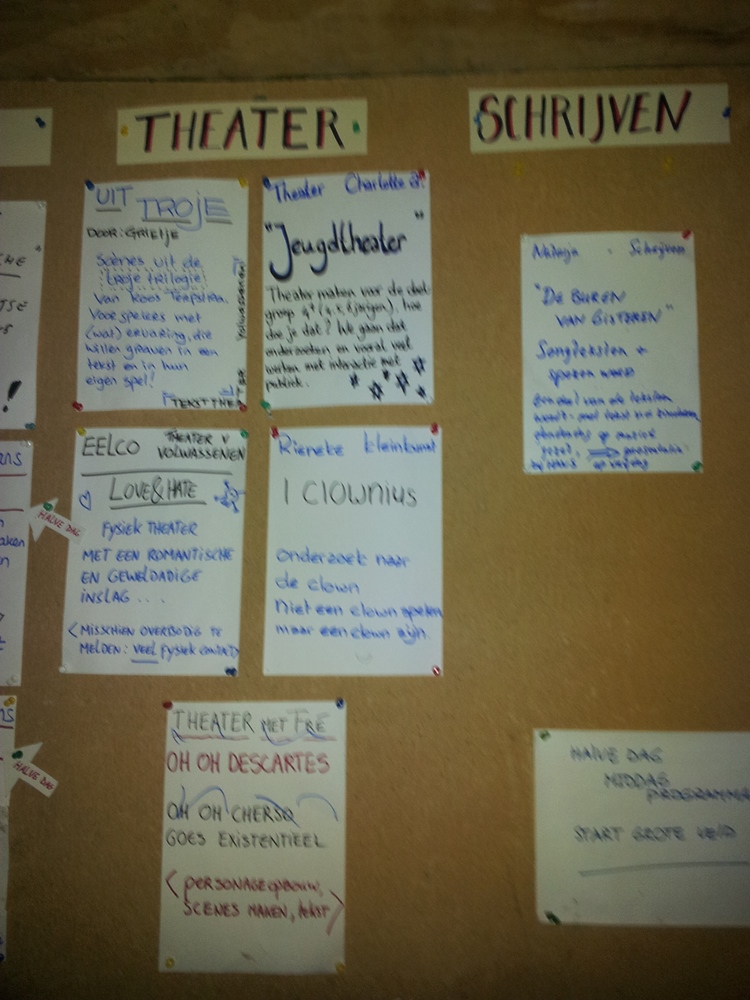 THEATER
SCHRIJVEN
UIT TROJE
DOOR: GRIETJE
Scènes uit de
troje trilogie
van Koos Terpstra.
Voor spelers met
(wat) ervaring, die
willen graven in een
tekst en in hun
eigen spel!
TEKSTTHE
volwassenen
Theater Charlotte
"Jeugdtheater"
Theater maken voor de doel-
groep 4+ (4, 5, 6 jarigen), hoe
doe je dat? We gaan dat
onderzoeken en vooral veel
werken met interactie met
publiek.
Natasja - Schrijven
"DE BUREN
VAN GISTEREN"
Songteksten +
spoken word
EELCO THEATER V
VOLWASSENEN
LOVE&HATE
FYSIEK THEATER
MET EEN ROMANTISCHE
EN GEWELDADIGE
INSLAG ....
<MISSCHIEN OVERBODIG TE
MELDEN: VEEL fysiek contact>
Rieneke kleinkunst
I clownius
onderzoek naar
de clown
Niet een clown spelen
maar een clown zijn.
HALVE DAG
HALVE DAG
THEATER MET FRÉ
OH OH DESCARTES
OH OH CHERSO
GOES EXISTENTIEEL
<personageopbouw,
SCENES MAKEN, tekst>
HALVE DAG
MIDDAG
PROGRAMMA
START GROTE VELD